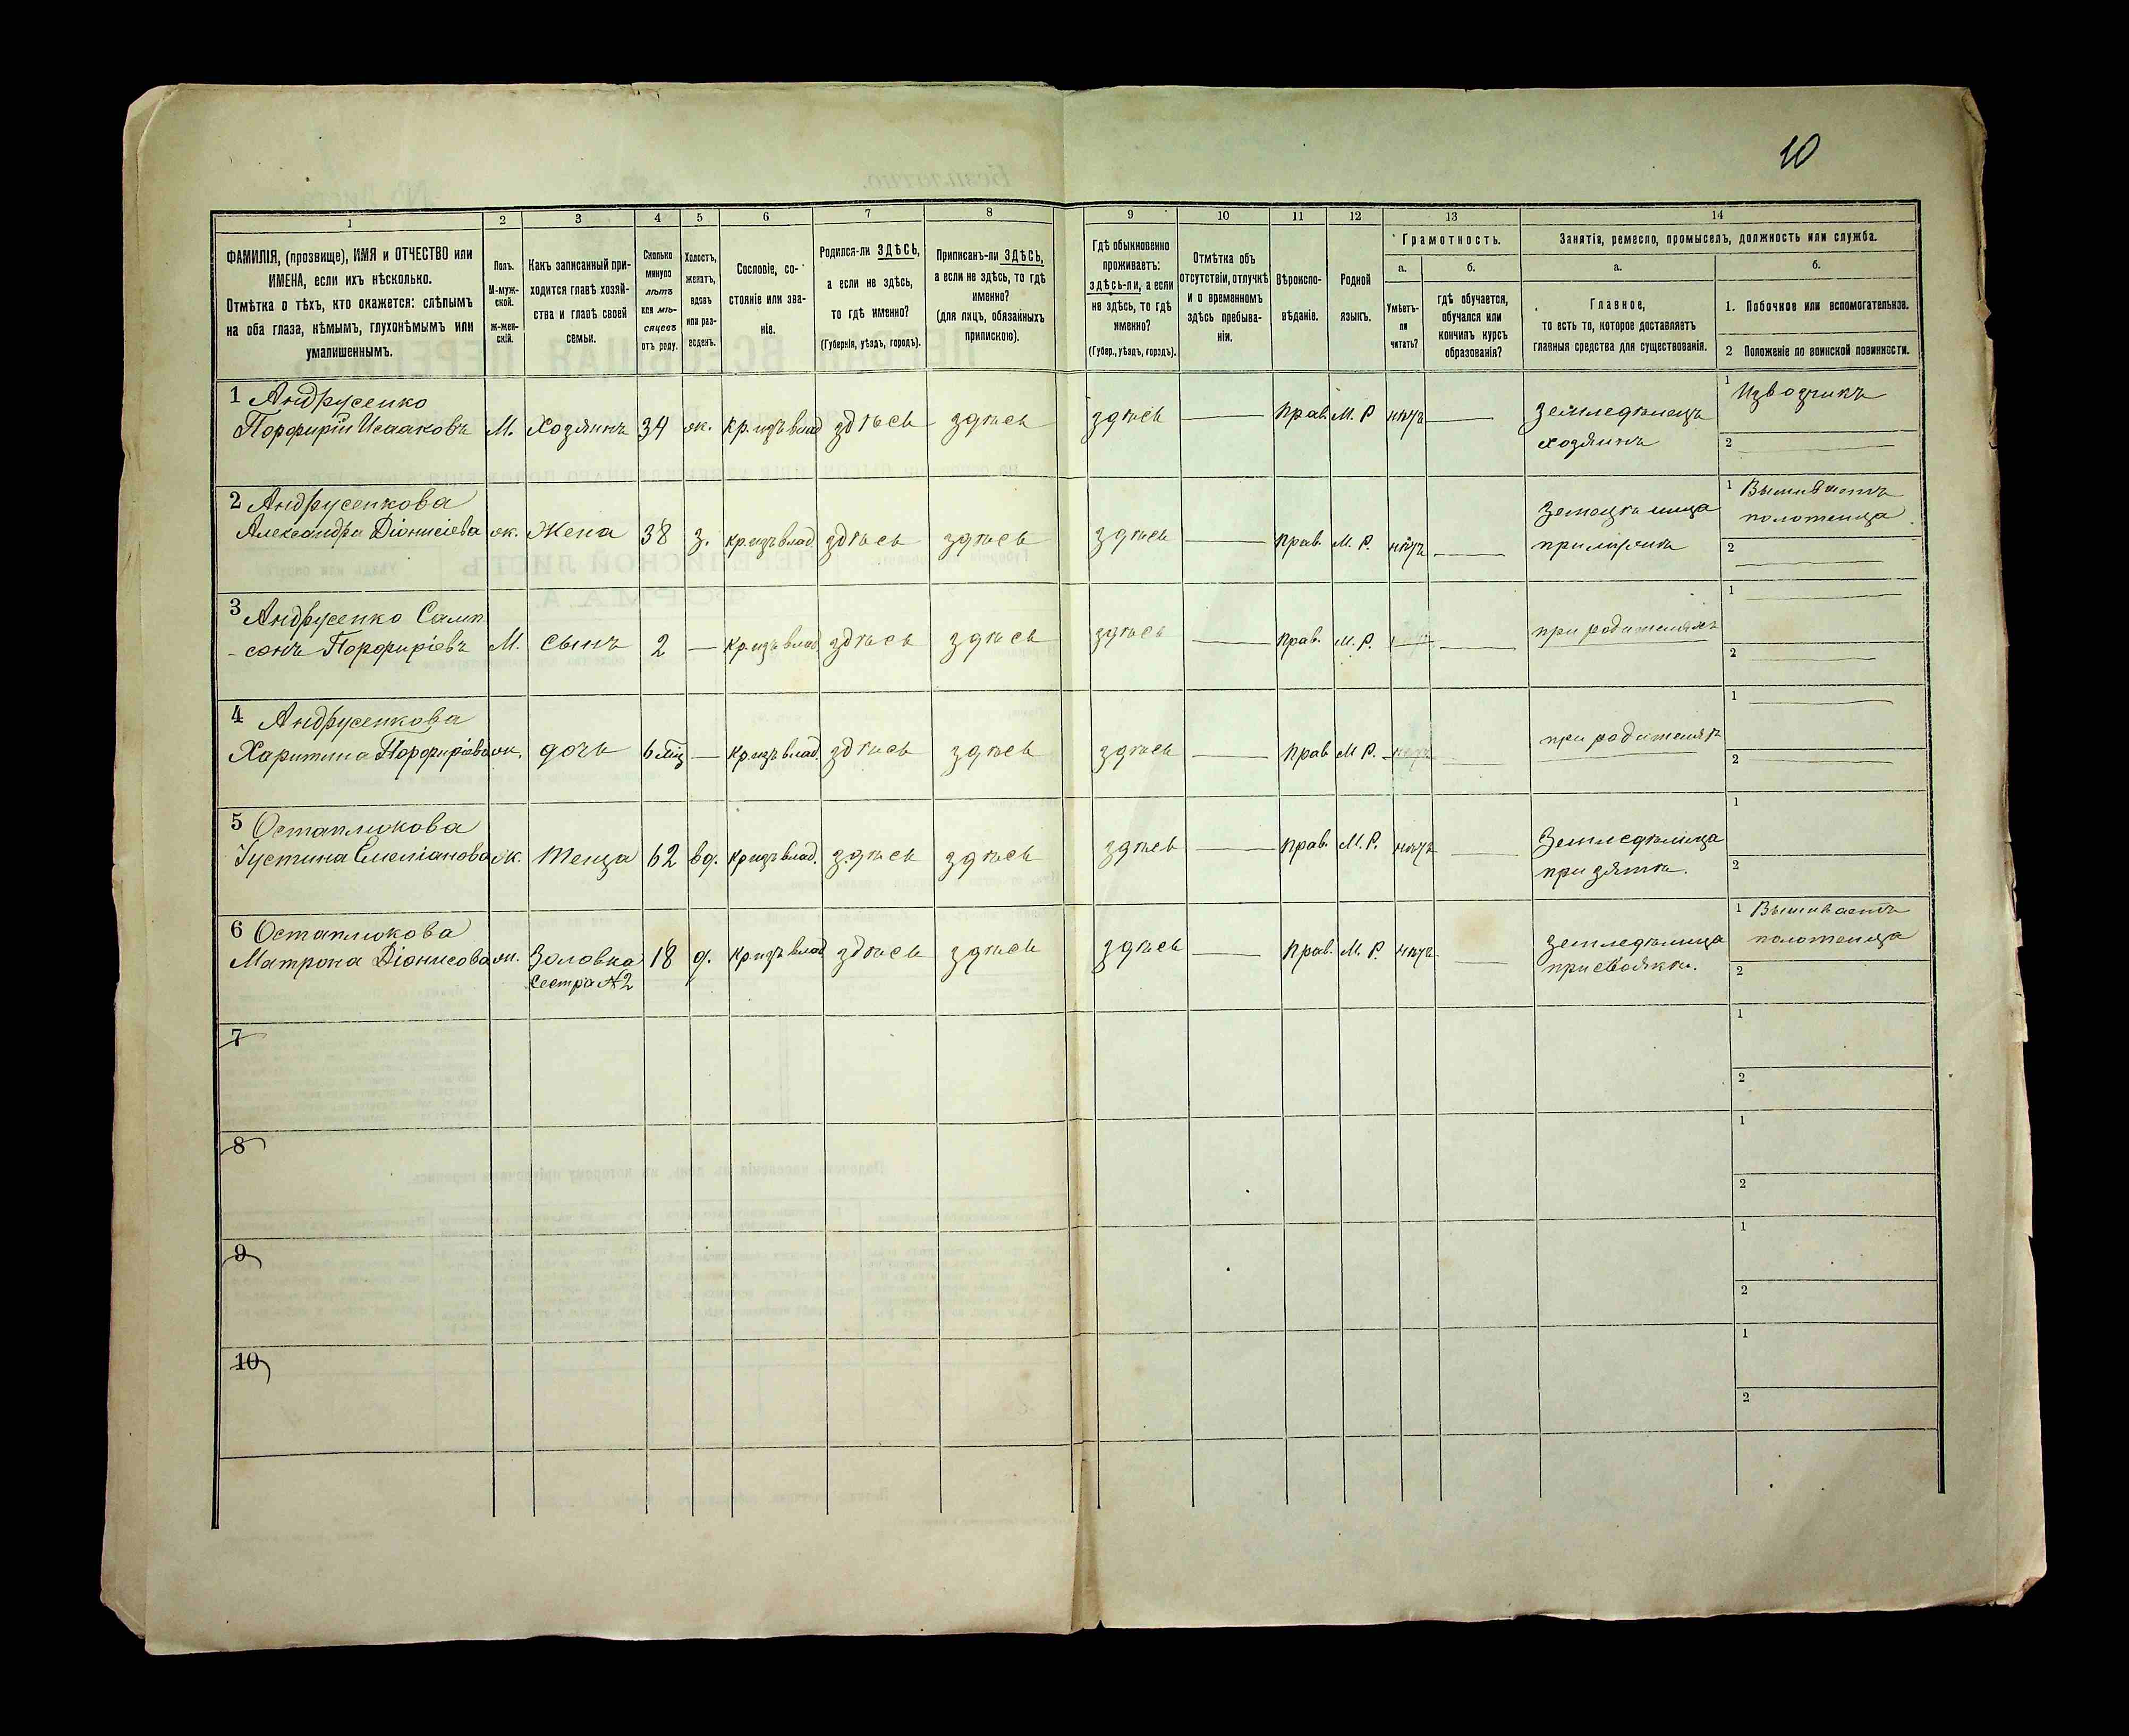 10
1 2 3 4 5 6 7 8 9 10 11 12 13 14
ФАМИЛІЯ, (прозвище), ИМЯ и ОТЧЕСТВО или
ИМЕНА, если ихъ нѣсколько.
Отмѣтка о тѣхъ, кто окажется: слѣпымъ
на оба глаза, нѣмымъ, глухонѣмымъ или
умалишеннымъ.
Полъ.
М-муж-
ской.
Ж-жен-
скій.
Какъ записанный при-
ходится главѣ хозяй-
ства и главѣ своей
семьи.
Сколько
минуло
лѣтъ
или мѣ-
сяцевъ
отъ роду.
Холостъ,
женатъ,
вдовъ
или раз-
веденъ.
Сословіе, со-
стояніе или зва-
ніе.
Родился-ли ЗДѢСЬ,
а если не здѣсь,
то гдѣ именно?
(Губернія, уѣздъ, городъ).
Приписанъ-ли ЗДѢСЬ,
а если не здѣсь, то гдѣ
именно?
(для лицъ, обязанныхъ
припискою).
Гдѣ обыкновенно
проживаетъ:
здѣсь-ли, а если
не здѣсь, то гдѣ
именно?
(Губер., уѣздъ, городъ).
Отмѣтка объ
отсутствіи, отлучкѣ
и о временномъ
здѣсь пребыва-
ніи.
Вѣроиспо-
вѣданіе.
Родной
языкъ.
Грамотность.
а.
Умѣетъ-
ли
читать?
б.
гдѣ обучается,
обучался или
кончилъ курсъ
образованія?
Занятія, ремесло, промыселъ, должность или служба.
а.
Главное,
то есть то, которое доставляетъ
главныя средства для существованія.
б.
1. Побочное или вспомогательное.
2 Положеніе по воинской повинности.
1 Андрусенко
Порфирій Исааковъ М. Хозяинъ 34 ж. кр. изъ влад здѣсь здѣсь здѣсь прав. М. Р нѣтъ земледѣлецъ
хозяинъ
1 Извозчикъ
2
2 Андрусенкова
Александра Діонисіева ж. Жена 38 з. кр изъ влад здѣсь здѣсь здѣсь прав. М. Р. нѣтъ
1 Вышиваетъ
полотенца
2
3 Андрусенко Самп
-сонъ Порфиріевъ М. сынъ 2 кр изъ влад. здѣсь здѣсь здѣсь прав. М. Р. при родителяхъ
1
2
4 Андрусенкова
Харитина Порфиріева ж. дочь 6 мѣц кр изъ влад. здѣсь здѣсь здѣсь прав М Р. нѣтъ при родителяхъ
1
2
5 Остаплюкова
Іустина Емеліанова ж. теща 62 вд. кр изъ влад. здѣсь здѣсь здѣсь прав. М. Р. нѣтъ Земледѣлица
при зятѣ.
1
2
6 Остаплюкова
Матрона Діонисова ж. Золовка 18 д. кр изъ влад здѣсь здѣсь здѣсь прав. М. Р. нѣтъ земледѣлица
сестра №2 при своякѣ.
1 Вышиваетъ
полотенца
2
7
1
2
8
1
2
9
1
2
10
1
2